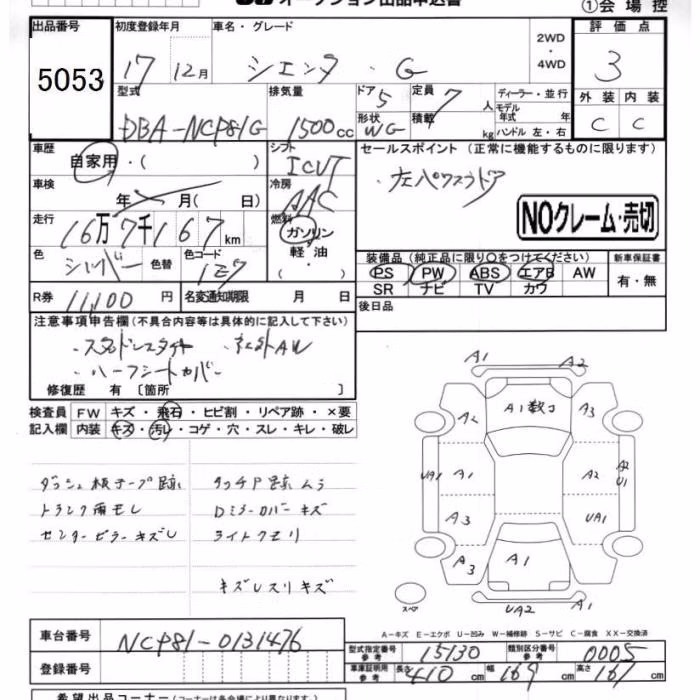 オークション出品申込書
①会場控
出品番号 5053
初度登録年月 17 12月
車名・グレード シエンタ ・ G
2WD ・ 4WD
評価点 3
型式 DBA-NCP81G
排気量 1500cc
ドア 5 形状 WG
定員 7人 積載 kg
ディーラー・並行
モデル年式 年
ハンドル 左・右
外装 C 内装 C
車歴 自家用・( )
シフト ICVT
セールスポイント (正常に機能するものに限ります)
・左パワスラドア
車検 年 月(日)
冷房 AAC
NOクレーム・売切
走行 16万7千167km
燃料 ガソリン 軽油 ・
色 シルバー 色替 色コード 1E7
装備品 (純正品に限り○をつけてください)
PS PW ABS エアB AW
SR ナビ TV カワ
新車保証書 有・無
R券 11,100円 名変通知期限 月 日
後日品
注意事項申告欄(不具合内容等は具体的に記入して下さい)
・スタッドレスタイヤ ・社外AW
・ハーフシートカバー
修復歴 有 〔箇所 〕
検査員 FW キズ・飛石・ヒビ割・リペア跡・×要
記入欄 内装 キズ・汚レ・コゲ・穴・スレ・キレ・破レ
ダッシュ板テープ跡 タッチP跡ムラ
トランク雨モレ Dミラーカバーキズ
センターピラーキズし ライトクモリ
キズレスリキズ
A1 A2
A2 A1数コ A3
UA1 A1 A2 A2 U1
A3 UA1
A3 A1
UA2 A2
スペア
A-キズ E-エクボ U-凹み W-補修跡 S-サビ C-腐食 XX-交換済
車台番号 NCP81-0131476
型式指定番号 参考 15130 類別区分番号 参考 0005
登録番号
車庫証明用 参考 長さ 410cm 幅 169cm 高さ 167cm
希望出品コーナー (コーナーは各会場により異なります)